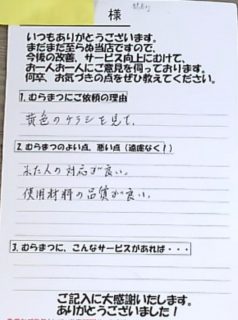 様
いつもありがとうございます。
まだまだ至らぬ当店ですので、
今後の改善、サービス向上にむけて、
お一人お一人にご意見を伺っております。
何卒、お気づきの点をぜひ教えてください。
1. むらまつにご依頼の理由
黄色のチラシを見て、
2. むらまつのよい点、悪い点(遠慮なく!)
来た人の対応が良い。
使用材料の品質が良い。
3. むらまつに、こんなサービスがあれば・・・
ご記入に大感謝いたします。
ありがとうございました!